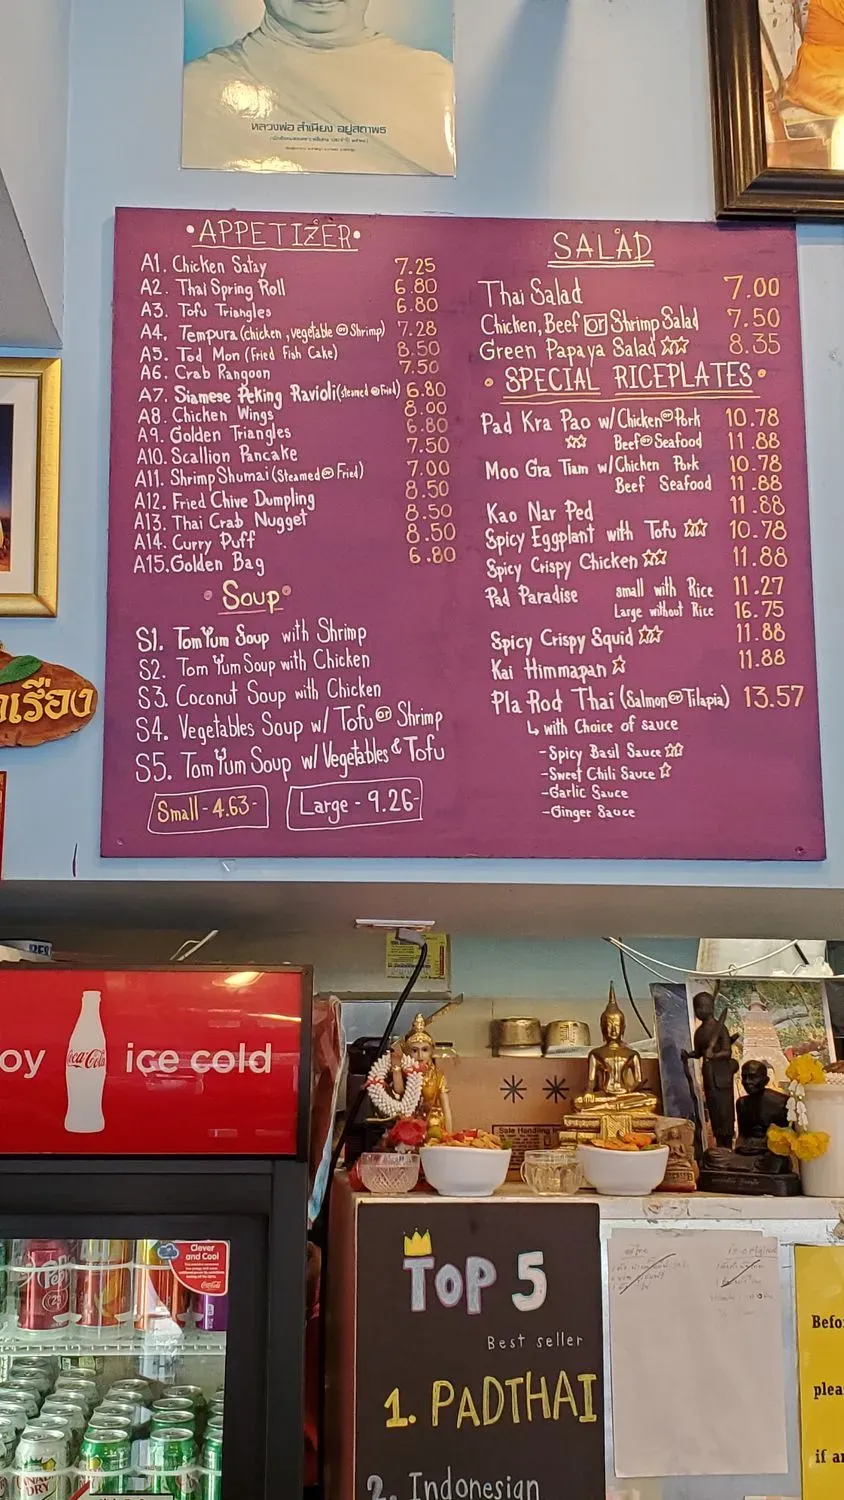 หลวงพ่อ สำเนียง อยู่สถาพร
•APPETIZER•
A1. Chicken Satay 7.25
A2. Thai Spring Roll 6.80
A3. Tofu Triangles 6.80
A4. Tempura (chicken, vegetable or Shrimp) 7.28
A5. Tod Mon (Fried Fish Cake) 8.50
A6. Crab Rangoon 7.50
A7. Siamese Peking Ravioli (steamed or Fried) 6.80
A8. Chicken Wings 8.00
A9. Golden Triangles 6.80
A10. Scallion Pancake 7.50
A11. Shrimp Shumai (Steamed or Fried) 7.00
A12. Fried Chive Dumpling 8.50
A13. Thai Crab Nugget 8.50
A14. Curry Puff 8.50
A15. Golden Bag 6.80
• Soup •
S1. Tom Yum Soup with Shrimp
S2. Tom Yum Soup with Chicken
S3. Coconut Soup with Chicken
S4. Vegetables Soup w/ Tofu or Shrimp
S5. Tom Yum Soup w/ Vegetables & Tofu
Small - 4.63-
Large - 9.26-
SALAD
Thai Salad 7.00
Chicken, Beef or Shrimp Salad 7.50
Green Papaya Salad ☆☆ 8.35
• SPECIAL RICEPLATES •
Pad Kra Pao w/ Chicken or Pork 10.78
☆☆ Beef or Seafood 11.88
Moo Gra Tiam w/ Chicken Pork 10.78
Beef Seafood 11.88
Kao Nar Ped 11.88
Spicy Eggplant with Tofu ☆☆ 10.78
Spicy Crispy Chicken ☆☆ 11.88
Pad Paradise small with Rice 11.27
Large without Rice 16.75
Spicy Crispy Squid ☆☆ 11.88
Kai Himmapan ☆ 11.88
Pla Rod Thai (Salmon or Tilapia) 13.57
↳ with Choice of sauce
- Spicy Basil Sauce ☆☆
- Sweet Chili Sauce ☆
- Garlic Sauce
- Ginger Sauce
เรือง
oy Coca-Cola ice cold
Clever
and Cool
Coca-Cola
CANADA
DRY
TOP 5
Best seller
1. PADTHAI
2. Indonesian
Befo
plea
if a